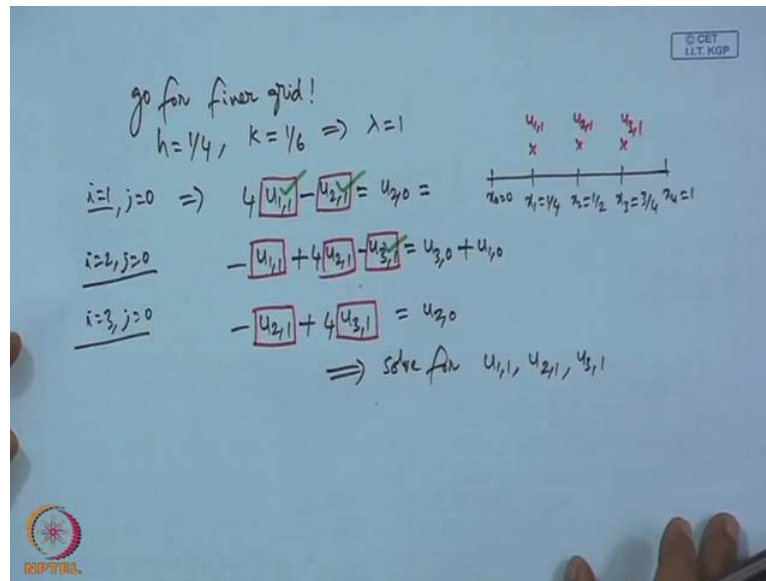 © CET
I.I.T. KGP
go for finer grid!
h=1/4, k=1/6 ⇒ λ=1
u1,1 u2,1 u3,1
x x x
x0=0 x1=1/4 x2=1/2 x3=3/4 x4=1
i=1, j=0 ⇒ 4 u1,1 - u2,1 = u2,0 =
i=2, j=0 - u1,1 + 4 u2,1 - u3,1 = u3,0 + u1,0
i=3, j=0 - u2,1 + 4 u3,1 = u2,0
⇒ solve for u1,1, u2,1, u3,1
NPTEL